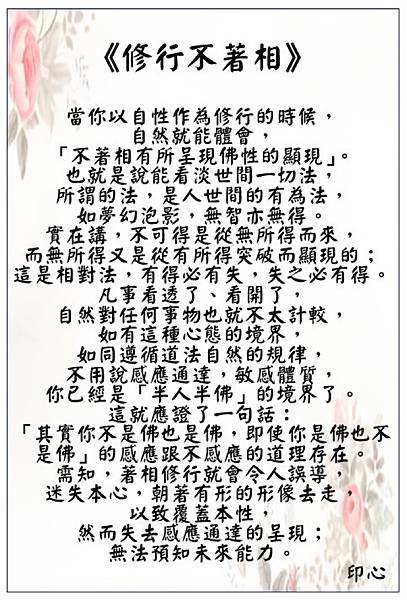 《修行不著相》
當你以自性作為修行的時候，
自然就能體會，
「不著相有所呈現佛性的顯現」。
也就是說能看淡世間一切法，
所謂的法，是人世間的有為法，
如夢幻泡影，無智亦無得。
實在講，不可得是從無所得而來，
而無所得又是從有所得突破而顯現的；
這是相對法，有得必有失，失之必有得。
凡事看透了、看開了，
自然對任何事物也就不太計較，
如有這種心態的境界，
如同遵循道法自然的規律，
不用說感應通達，敏感體質，
你已經是「半人半佛」的境界了。
這就應證了一句話：
「其實你不是佛也是佛，即使你是佛也不
是佛」的感應跟不感應的道理存在。
需知，著相修行就會令人誤導，
迷失本心，朝著有形的形像去走，
以致覆蓋本性，
然而失去感應通達的呈現；
無法預知未來能力。
印心